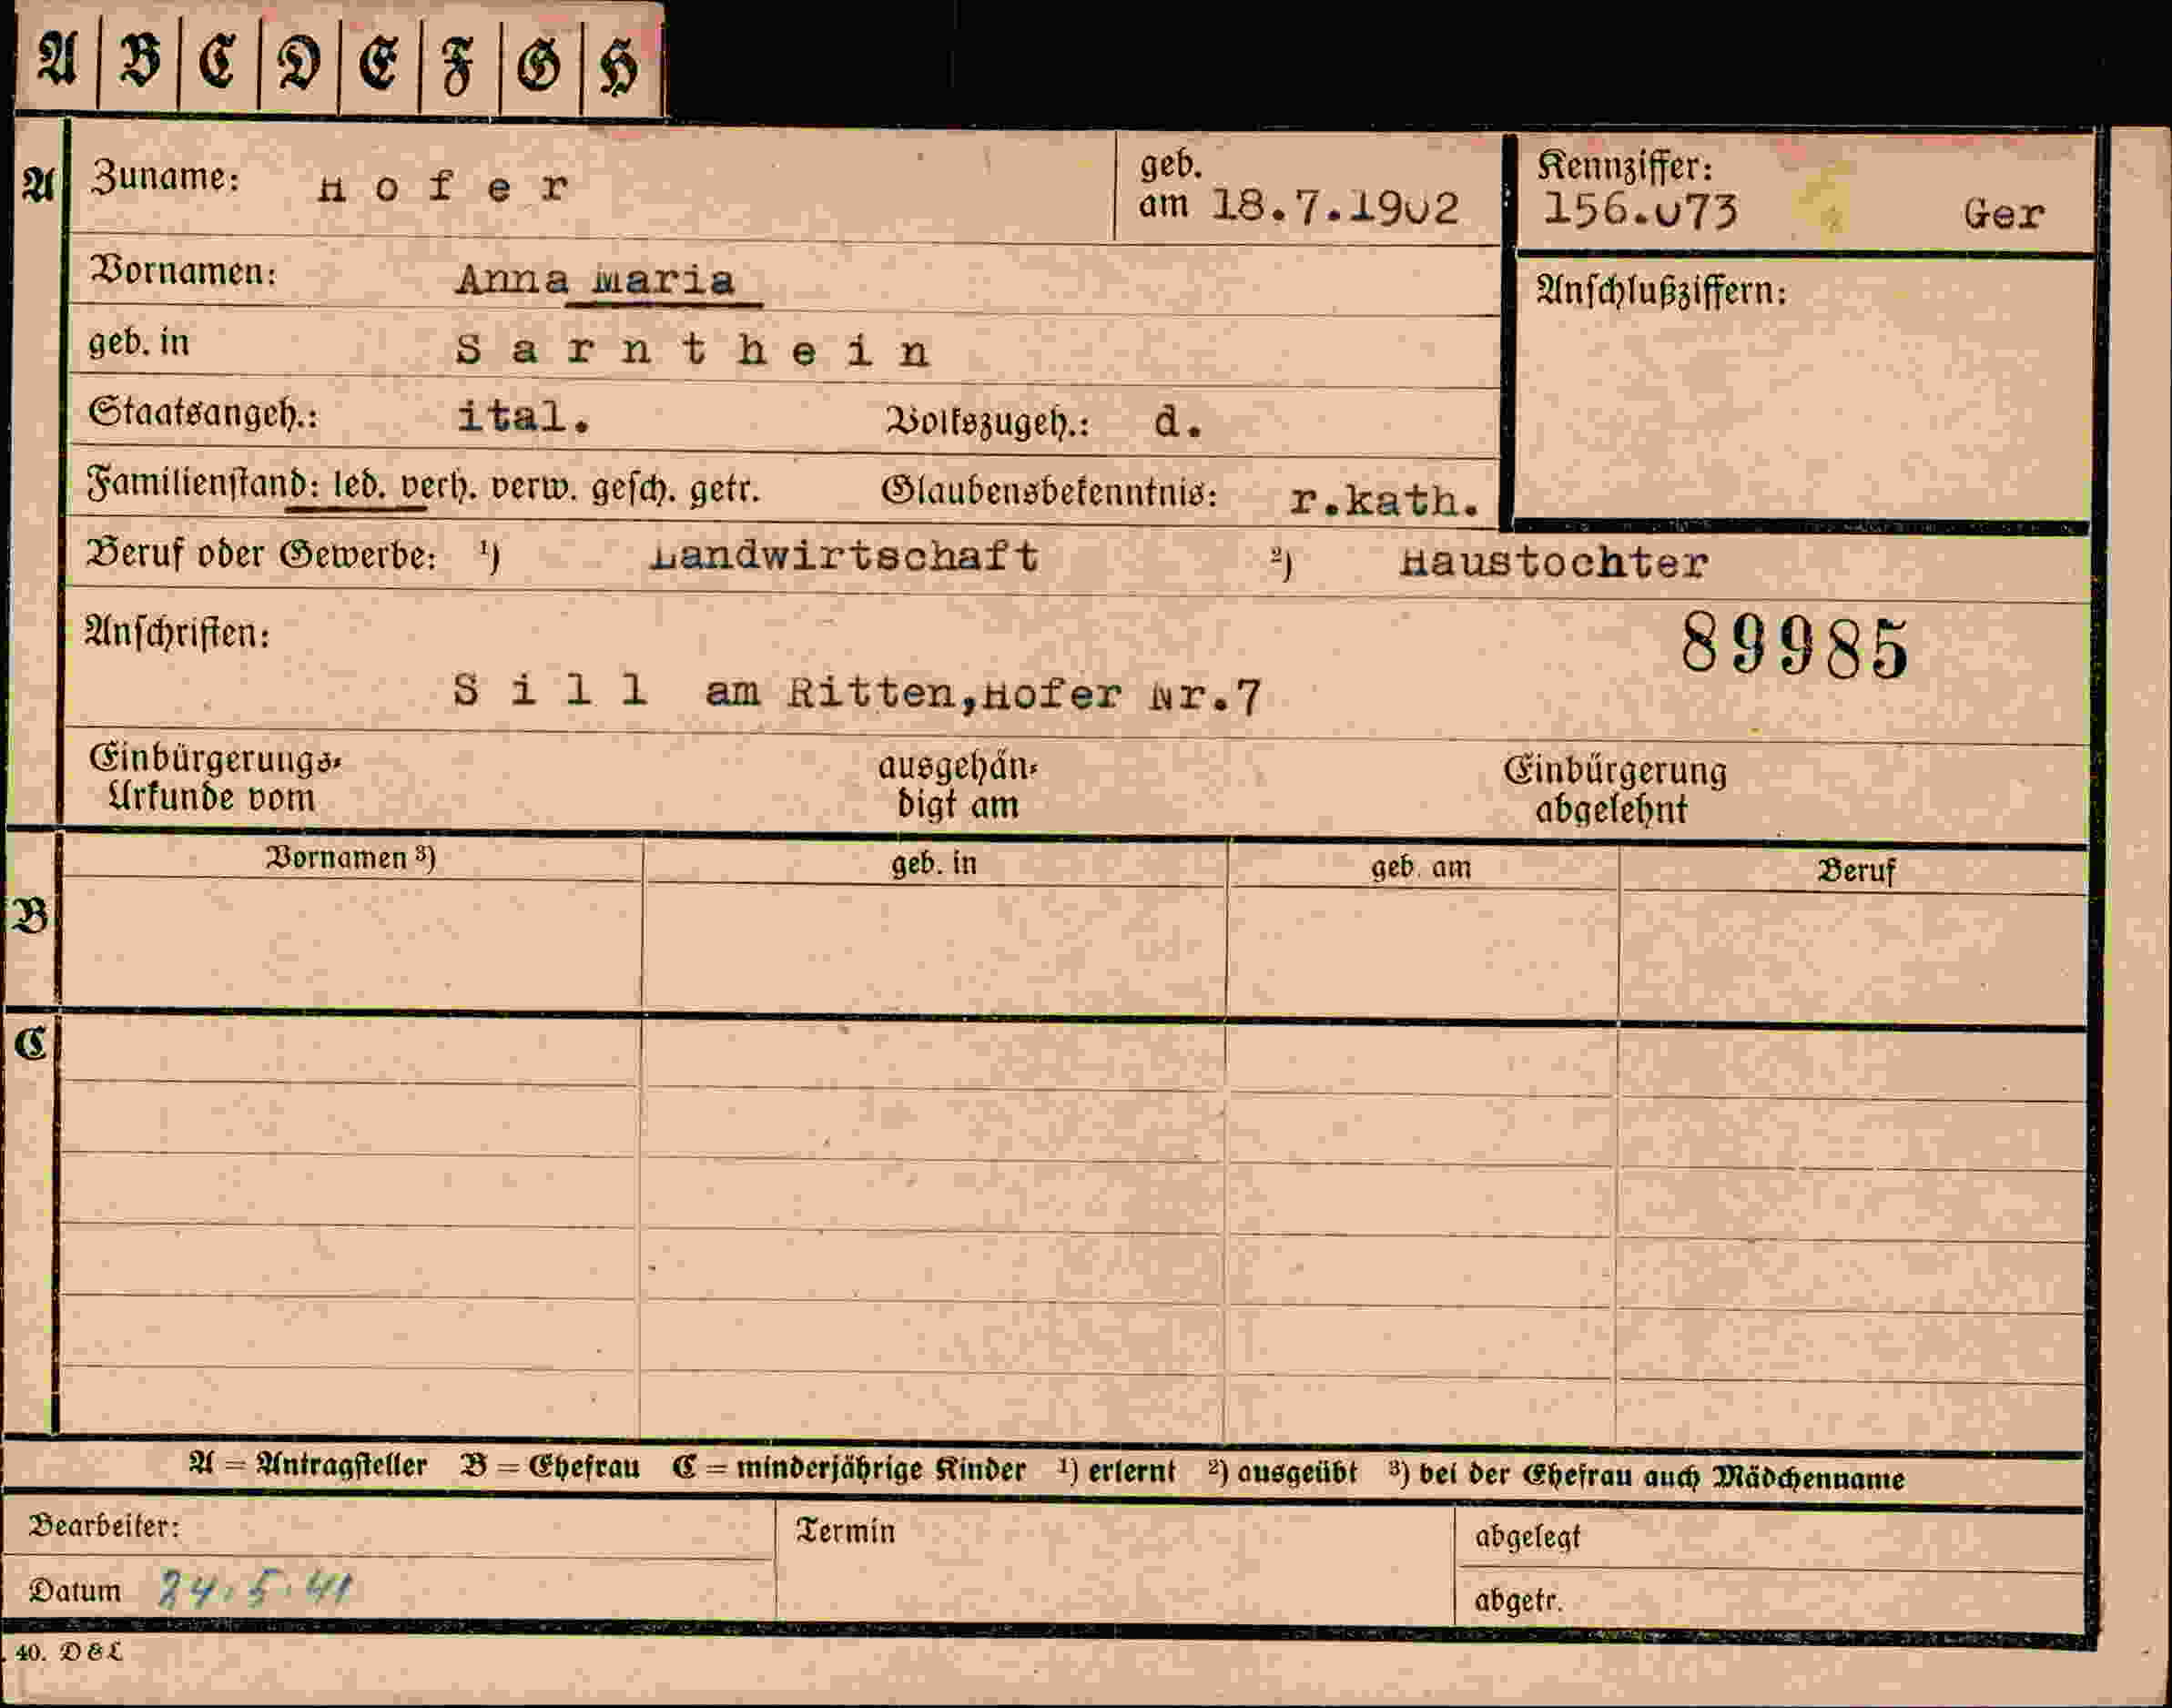 A B C D E F G H
A Zuname: Hofer geb. am 18.7.1902 Kennziffer: 156.073 Ger
Vornamen: Anna Maria Anschlußziffern:
geb. in Sarnthein
Staatsangeh.: ital. Volkszugeh.: d.
Familienstand: led. verh. verw. gesch. getr. Glaubensbekenntnis: r.kath.
Beruf oder Gewerbe: ¹) Landwirtschaft ²) Haustochter
Anschriften: 89985
Sill am Ritten,Hofer Nr.7
Einbürgerungs- ausgehän- Einbürgerung
Urkunde vom digt am abgelehnt
Vornamen ³) geb. in geb. am Beruf
B
C
A = Antragsteller B = Ehefrau C = minderjährige Kinder ¹) erlernt ²) ausgeübt ³) bei der Ehefrau auch Mädchenname
Bearbeiter: Termin abgelegt
Datum 24.5.41 abgetr.
40. D&L